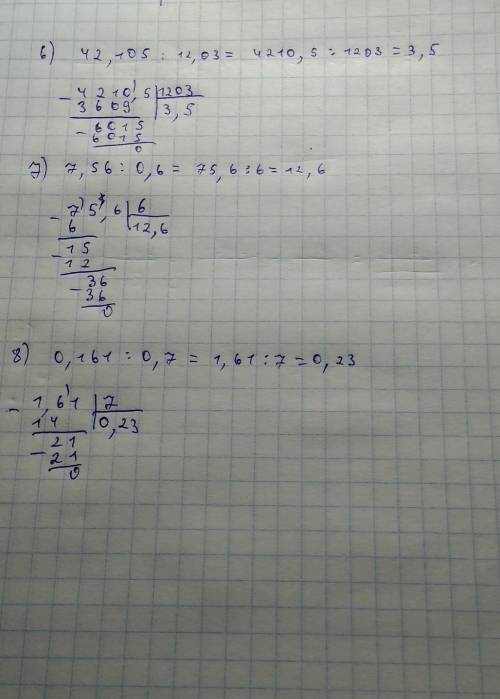 6) 42,105 : 12,03 = 4210,5 : 1203 = 3,5
- 4210,5 | 1203
3609 | 3,5
- 6015
6015
0
7) 7,56 : 0,6 = 75,6 : 6 = 12,6
- 75,6 | 6
6 | 12,6
- 15
12
- 36
36
0
8) 0,161 : 0,7 = 1,61 : 7 = 0,23
- 1,61 | 7
14 | 0,23
- 21
21
0